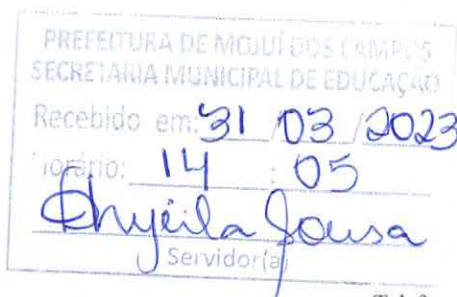 PREFEITURA DE MOJUÍ DOS CAMPOS
SECRETARIA MUNICIPAL DE EDUCAÇÃO
Recebido em: 31 / 03 / 2023
Horário: 14 : 05
Sousa
Servidor(a)